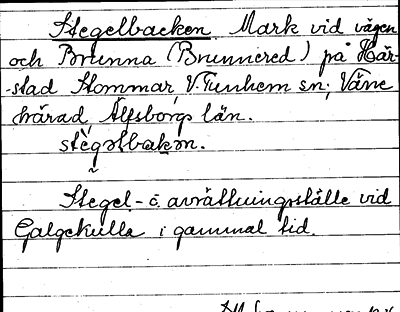 Stegelbacken. Mark vid vägen
och Brunna (Brunnered) på Här-
-stad Stommar, V. Tunhem sn; Väne
härad Älfsborgs län.
stegəlbakən.
Stegel- o. avrättningsställe vid
Galgekulla i gammal tid.